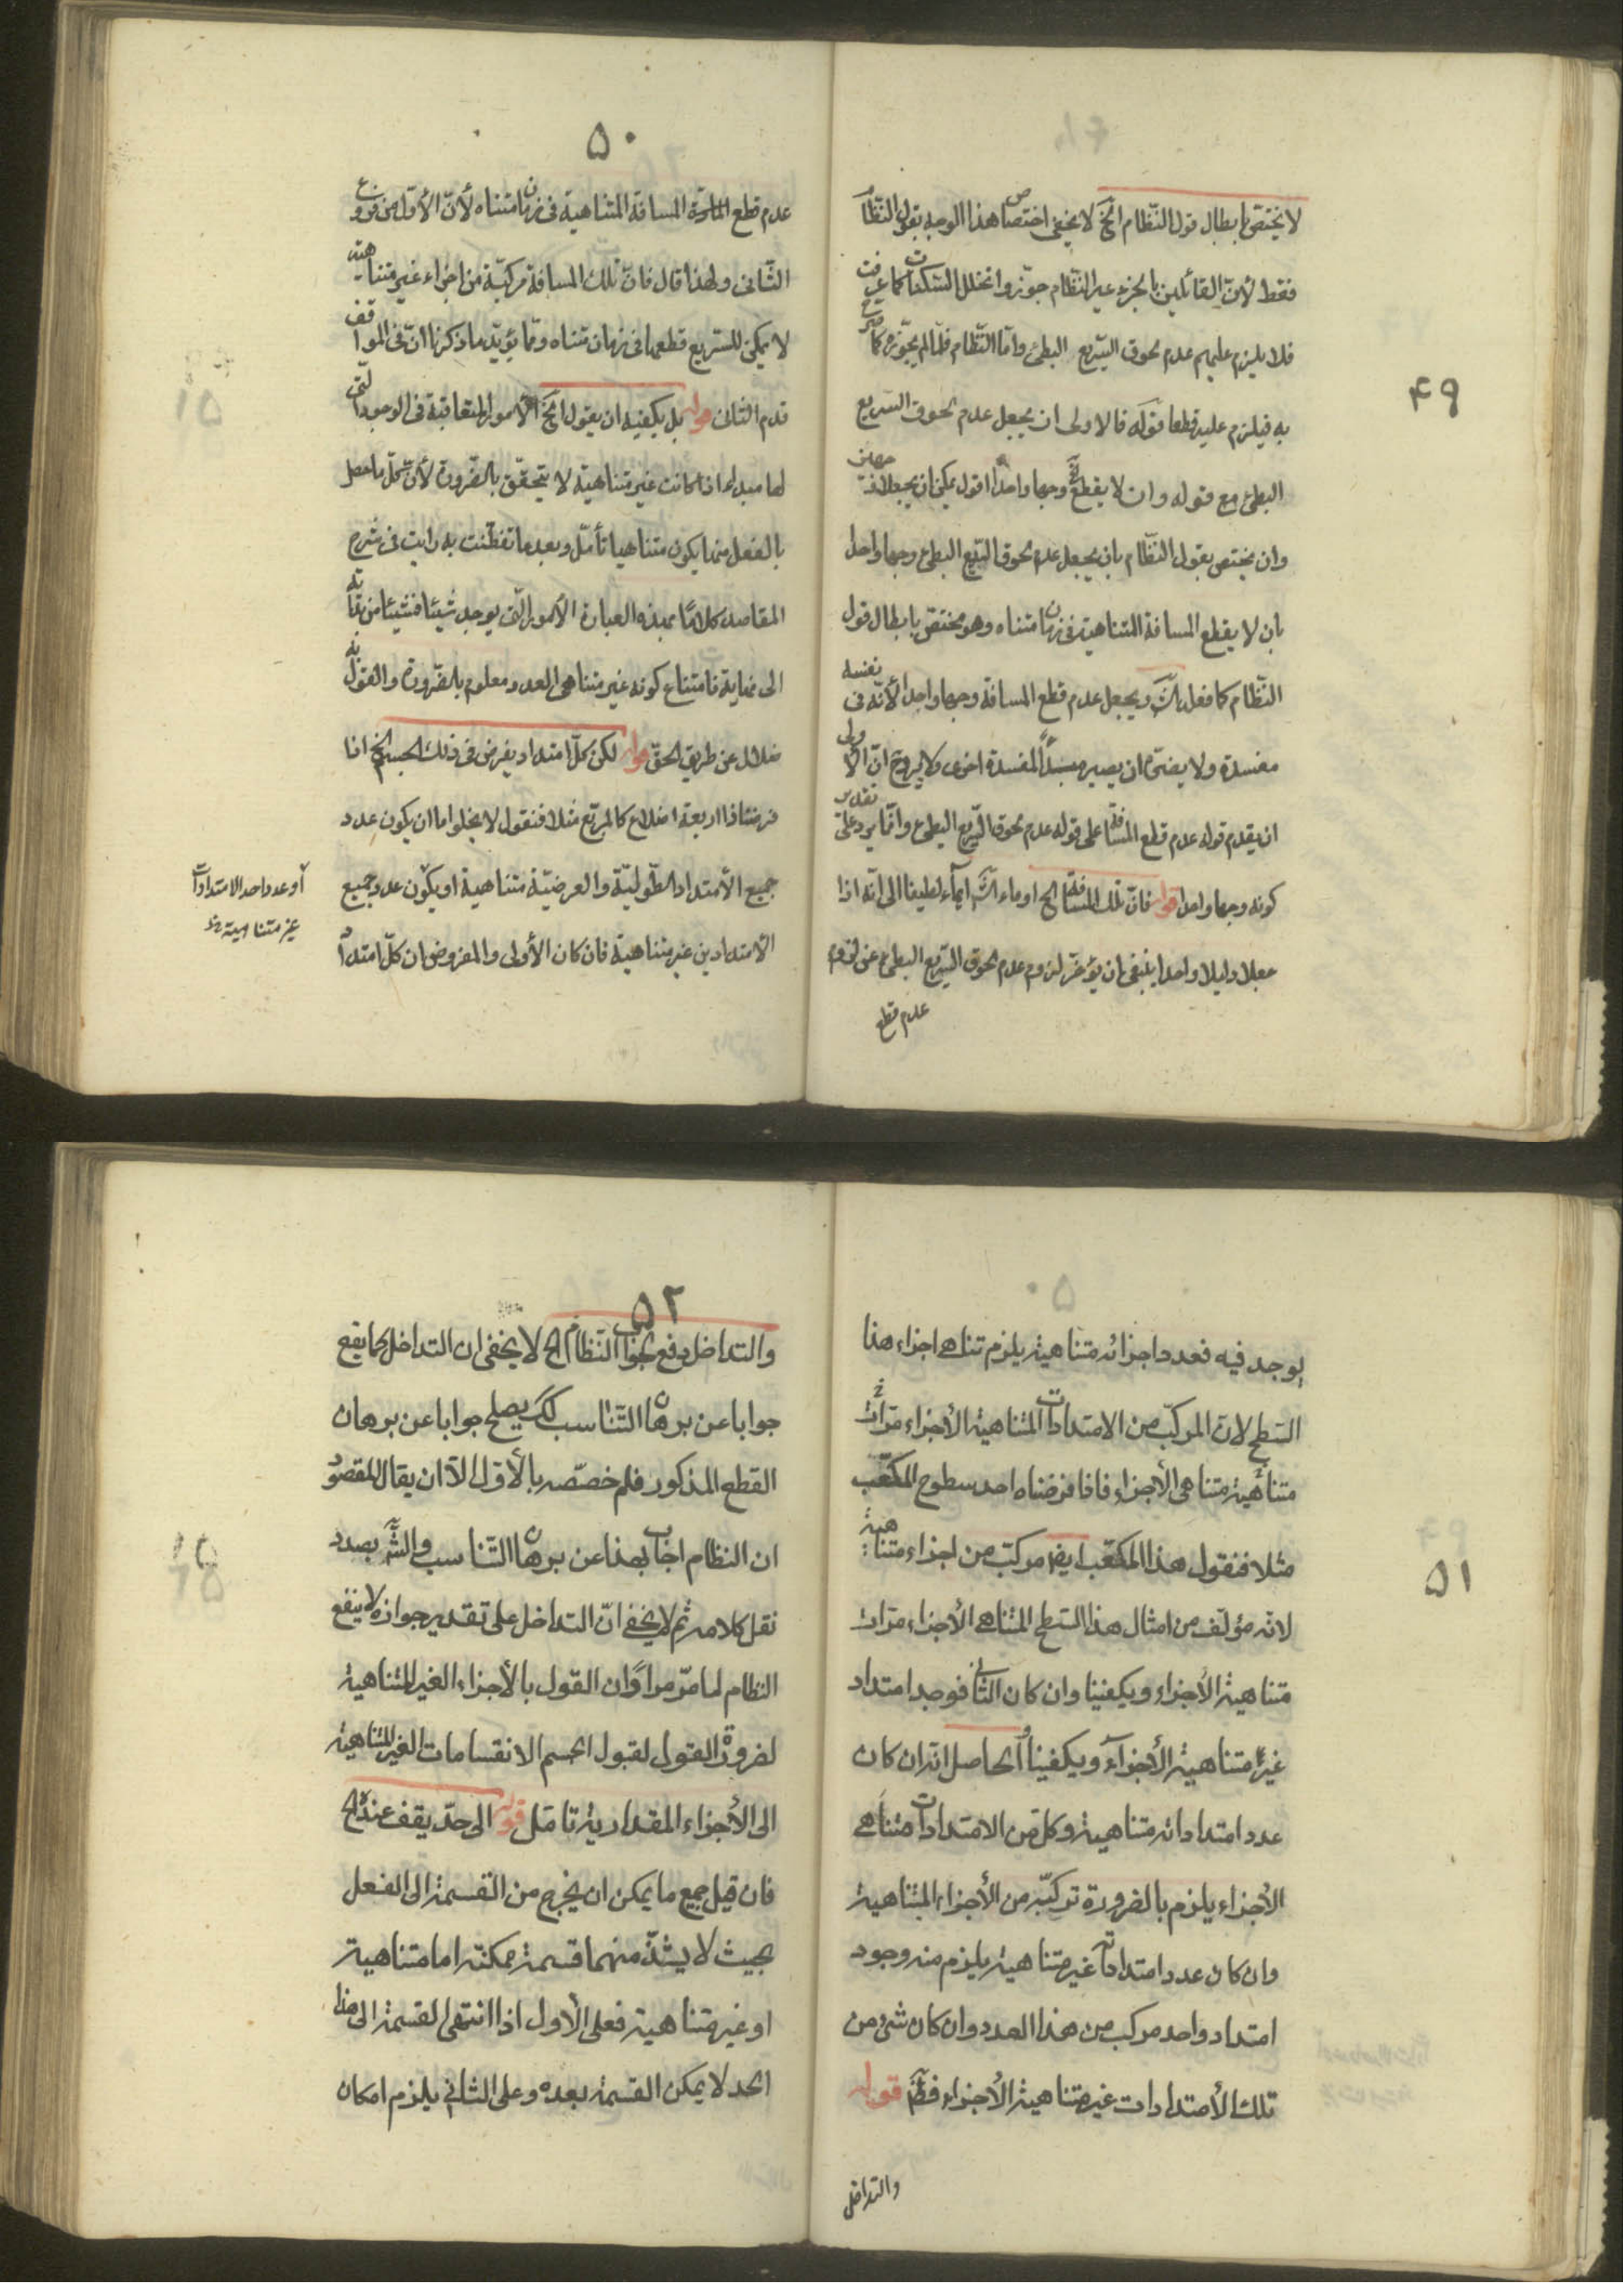 ۴۹
لا يختصّ بابطال قول النّظام الخ لا يخفى اختصاص هذا الوجه بقول النّظام
فقط لأنّ القائلين بالجزء غير النّظام جوّزوا تخلل السّكنات كما عرفت
فلا يلزم عليهم عدم لحوق السّريع البطئ وامّا النّظام فلمّا لم يجوّزه كما صرّح
به فيلزم عليه قطعا قوله فالاولى ان يجعل عدم لحوق السّريع
البطئ مع قوله وان لا يقطع وجها واحدا اقول يمكن ان يجعلا وجهين
وان يختص بقول النّظام بان يجعل عدم لحوق السّريع البطئ وجها واحدا
بان لا يقطع المسافة المتناهية فى زمان متناه وهو مختصّ بابطال قول
النّظام كما فعل الشّ ويجعل عدم قطع المسافة وجها واحدا لأنّه فى نفسه
مفسدة ولا يضرّ ان يصير سببا لمفسدة اخرى ولا يروج انّ الأولى
ان يقدم قوله عدم قطع المسافة على قوله عدم لحوق السّريع البطئ وانّما يرد على تقدير
كونه وجها واحدا قوله فانّ تلك المسافة الخ اوماء الشّ ايماء لطيفا الى انّه اذا
جعلا دليلا واحدا ينبغى ان يؤخّر لزوم عدم لحوق السّريع البطئ عن لزوم
عدم قطع
۵۰
عدم قطع المسافة المتناهية فى زمان متناه لأنّ الأوّل من فروع
الثّانى ولهذا قال فانّ تلك المسافة مركبّة من اجزاء غير متناهية
لا يمكن للسّريع قطعها فى زمان متناه وممّا يؤيّد ما ذكرنا انّ فى المواقف
قدم الثانى قوله بل يكفيه ان يقول الخ الأمور المتعاقبة فى الوجود الّتى
لها مبدء اذا كانت غير متناهية لا يتحقّق بالضّرورة لأنّ كلّ ما حصل
بالفعل منها يكون متناهيا تأمّل وبعد ما تفطّنت به رايت فى شرح
المقاصد كلامًا بهذه العبارة الأمور الّتى يوجد شيئا فشيئا من بداية
الى نهاية فامتناع كونه غير متناهى العدد معلوم بالضّرورة والقول به
ضلال عن طريق الحقّ قوله لكن كلّ امتداد يفرض فى ذلك الجسم الخ اذا
فرضنا ذا اربعة اضلاع كالمربّع مثلا فنقول لا يخلوا اما ان يكون عدد
جميع الأمتداد الطّوليّة والعرضيّة متناهية او يكون عدد جميع
الأمتدادين غير متناهية فان كان الأولى والمفروض ان كلّ امتداد
او عدد احد الامتدادات
غير متناهية
۵۱
يوجد فيه فعدد اجزائه متناهية يلزم تناهى اجزاء هذا
السّطح لانّ المركّب من الامتدادات المتناهية الأجزاء مرّات
متناهية متناهى الأجزاء فاذا فرضناه احد سطوح المكعّب
مثلا فنقول هذا المكعّب ايضا مركّب من اجزاء متناهية
لانّه مؤلّف من امثال هذا السّطح المتناهى الأجزاء مرّات
متناهية الأجزاء ويكفينا وان كان الثّانى فوجد امتداد
غير متناهية الأجزاء ويكفينا والحاصل انّه ان كان
عدد امتداداته متناهية وكل من الامتدادات متناهى
الأجزاء يلزم بالضرورة تركّبه من الأجزاء المتناهية
وان كان عدد امتداداته غير متناهية يلزم منه وجود
امتداد واحد مركب من هذا العدد وان كان شئ من
تلك الأمتدادات غير متناهية الأجزاء فثمّ قوله
والتداخل
۵۲
والتداخل دفع بجواب النّظام الخ لا يخفى ان التداخل كما يقع
جوابا عن برهان التّناسب كك يصلح جوابا عن برهان
القطع المذكور فلم خصّصه بالأوّل الّا ان يقال المقصود
ان النظام اجاب بهذا عن برهان التّناسب والشّ بصدد
نقل كلامه ثم لا يخفى انّ التداخل على تقدير جوازه لا ينفع
النظام لما مرّ مرارًا ان القول بالأجزاء الغير المتناهية
لضرورة القول لقبول الجسم الانقسامات الغير المتناهية
الى الأجزاء المقدارية تامّل قوله الى حدّ يقف عنده الخ
فان قيل جميع ما يمكن ان يخرج من القسمة الى الفعل
بحيث لا يشذّ منهما قسمة ممكنة اما متناهية
او غير متناهية فعلى الأول اذا انتهى القسمة الى هذا
الحد لا يمكن القسمة بعده وعلى الثانى يلزم امكان